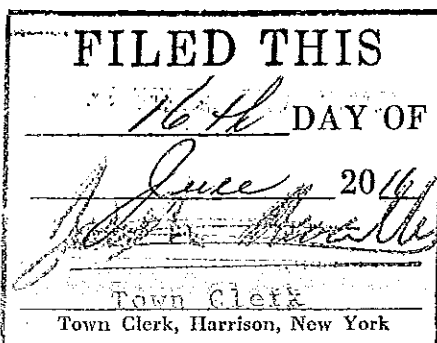 FILED THIS
16th DAY OF
June 2016
Town Clerk
Town Clerk, Harrison, New York